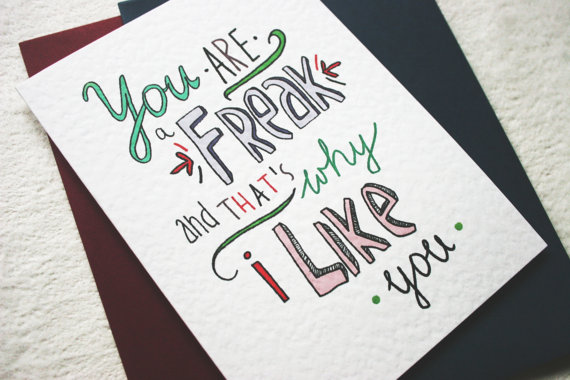 You ARE.
a FREAK
and THAT's why
i LIKE
you